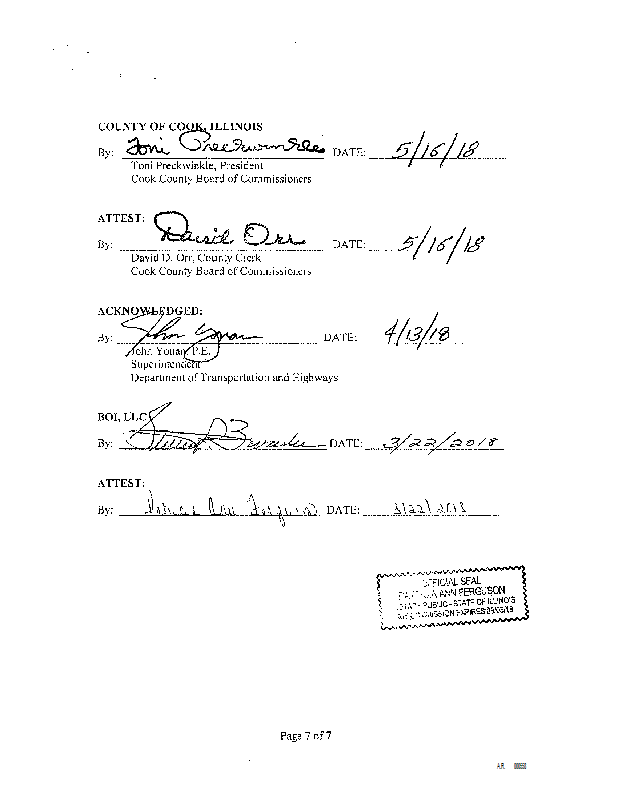 COUNTY OF COOK, ILLINOIS
By: Toni Preckwinkle DATE: 5/16/18
Toni Preckwinkle, President
Cook County Board of Commissioners
ATTEST:
By: David Orr DATE: 5/16/18
David D. Orr, County Clerk
Cook County Board of Commissioners
ACKNOWLEDGED:
By: John Yonan DATE: 4/13/18
John Yonan, P.E.
Superintendent
Department of Transportation and Highways
BOI, LLC
By: DATE: 3/22/2018
ATTEST:
By: Ann Ferguson DATE: 3/22/2018
OFFICIAL SEAL
ANN FERGUSON
PUBLIC - STATE OF ILLINOIS
EXPIRES
Page 7 of 7
AR